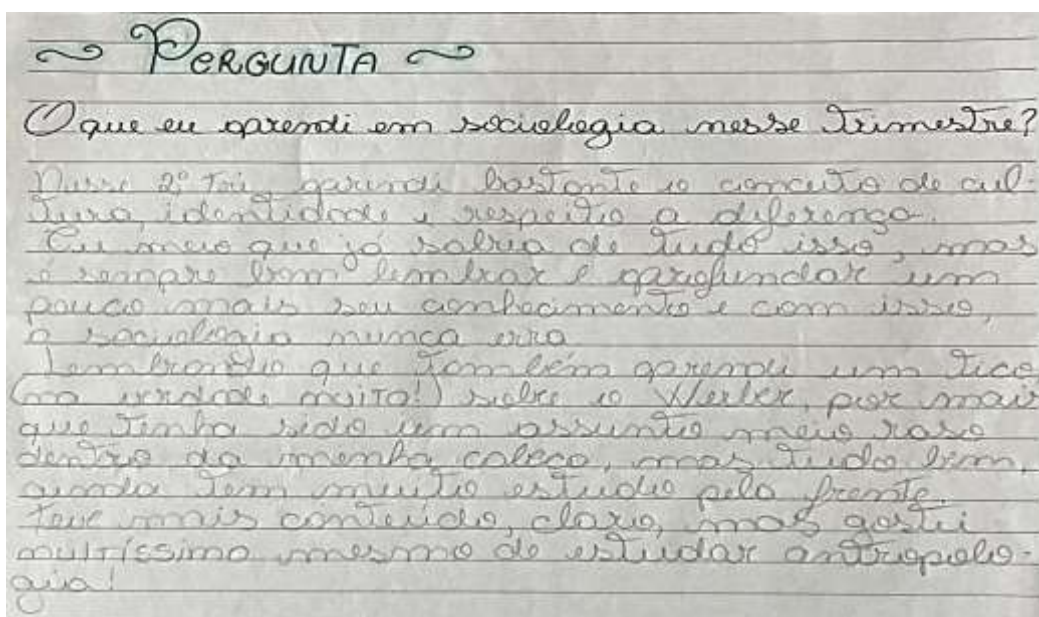 ~ PERGUNTA ~
O que eu aprendi em sociologia nesse trimestre?
Nesse 2º Tri, aprendi bastante o conceito de cul-
tura, identidade e respeito a diferença.
Eu meio que já sabia de tudo isso, mas
é sempre bom lembrar e aprofundar um
pouco mais seu conhecimento e com isso,
a sociologia nunca erra.
Lembrando que também aprendi um tico
(na verdade muito!) sobre o Weber, por mais
que tenha sido um assunto meio raso
dentro da minha cabeça, mas tudo bem,
ainda tem muito estudo pela frente.
Teve mais conteúdo, claro, mas gostei
muitíssimo mesmo de estudar antropolo-
gia!